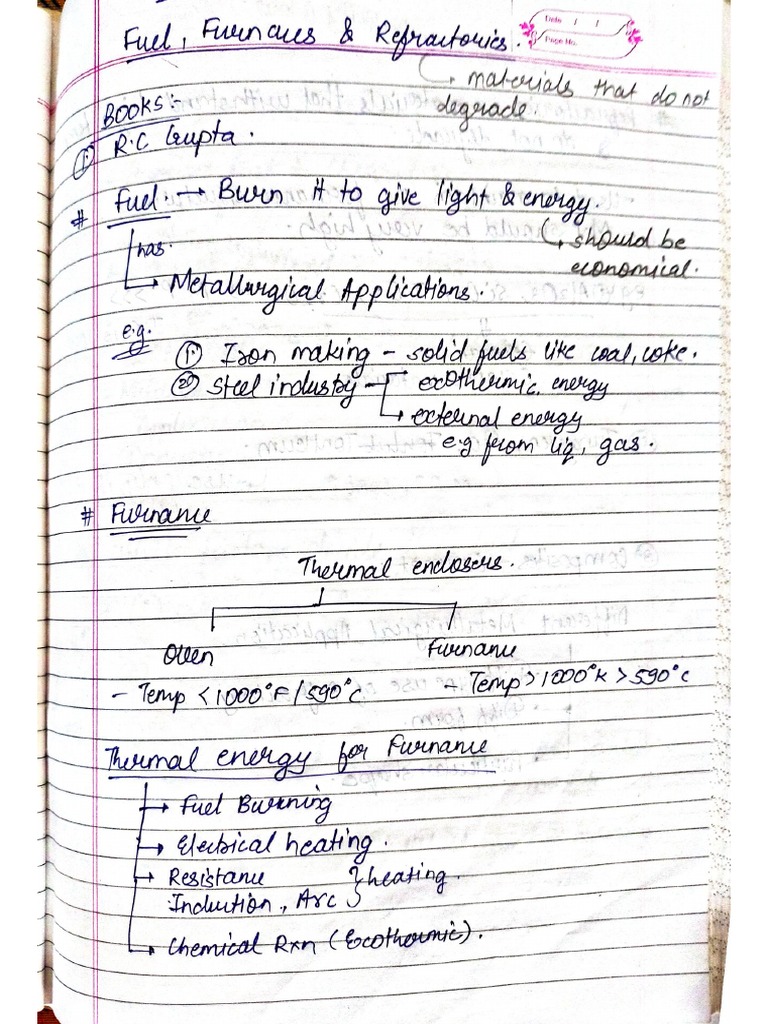 Fuel, Furnaces & Refractories.
Date / /
Page No.
→ materials that do not
degrade.
BOOKS:-
① R.C Gupta.
# Fuel. → Burn it to give light & energy.
↳ should be
economical.
has.
→ Metallurgical Applications.
e.g.
① Iron making - solid fuels like coal, coke.
② Steel industry - exothermic energy
→ external energy
e.g from liq, gas.
# Furnance
Thermal enclosers.
Oven
Furnance
- Temp < 1000°F / 590°C
- Temp > 1000°K > 590°C
Thermal energy for Furnance
→ Fuel Burning
→ Electrical heating.
→ Resistance } heating.
Induction, Arc
→ Chemical Rxn (Exothermic).